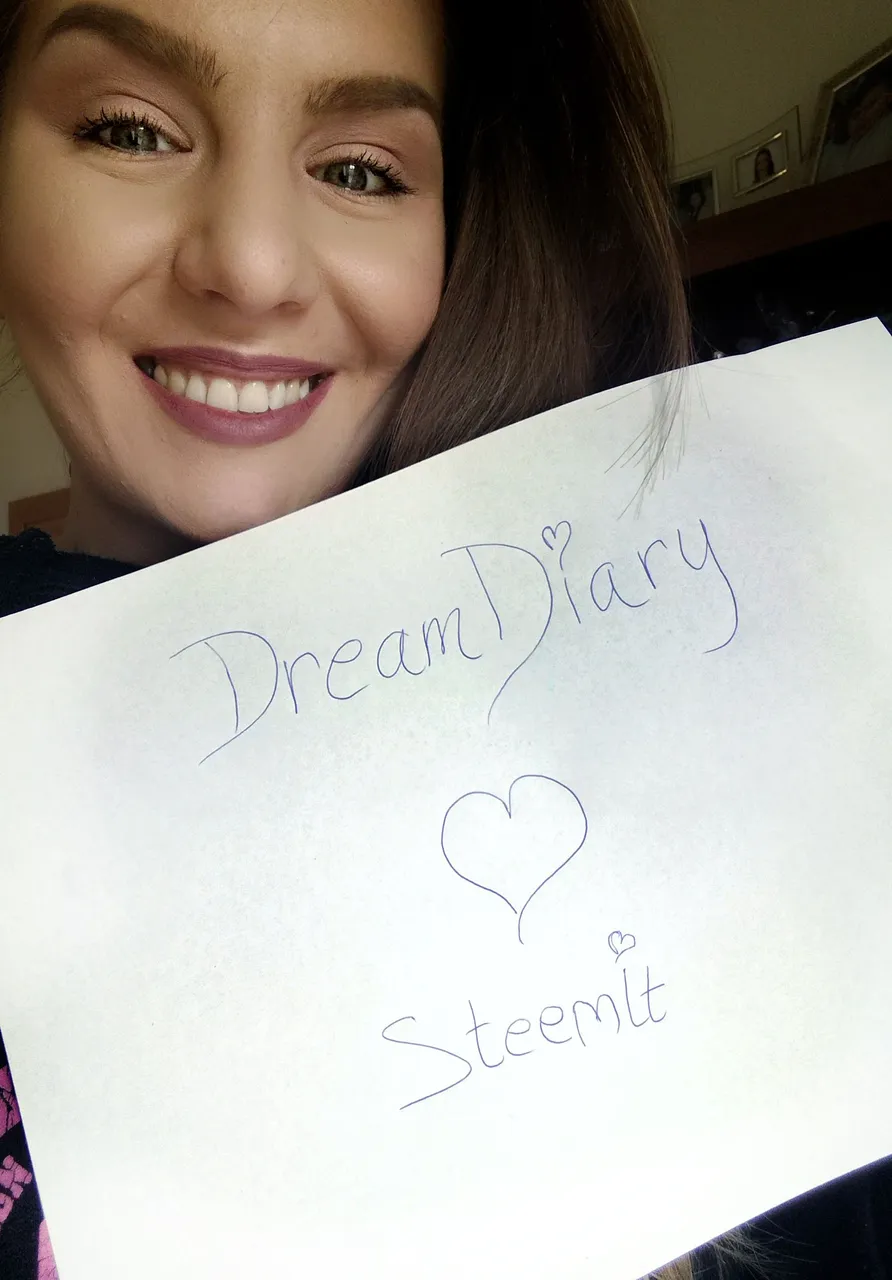 DreamDiary
SteemIt